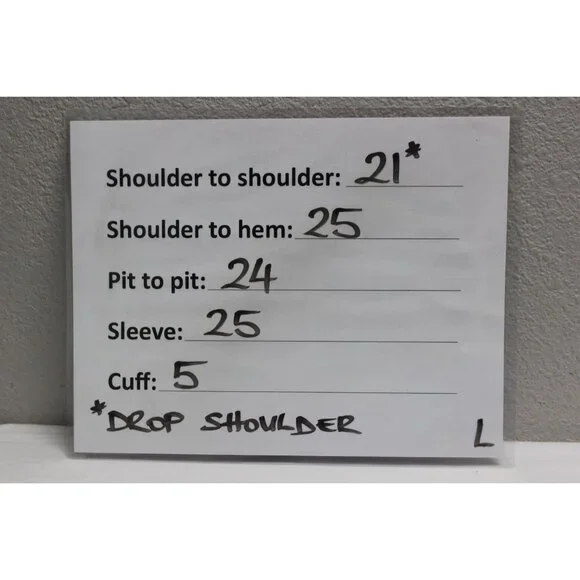 Shoulder to shoulder: 21*
Shoulder to hem: 25
Pit to pit: 24
Sleeve: 25
Cuff: 5
*DROP SHOULDER
L